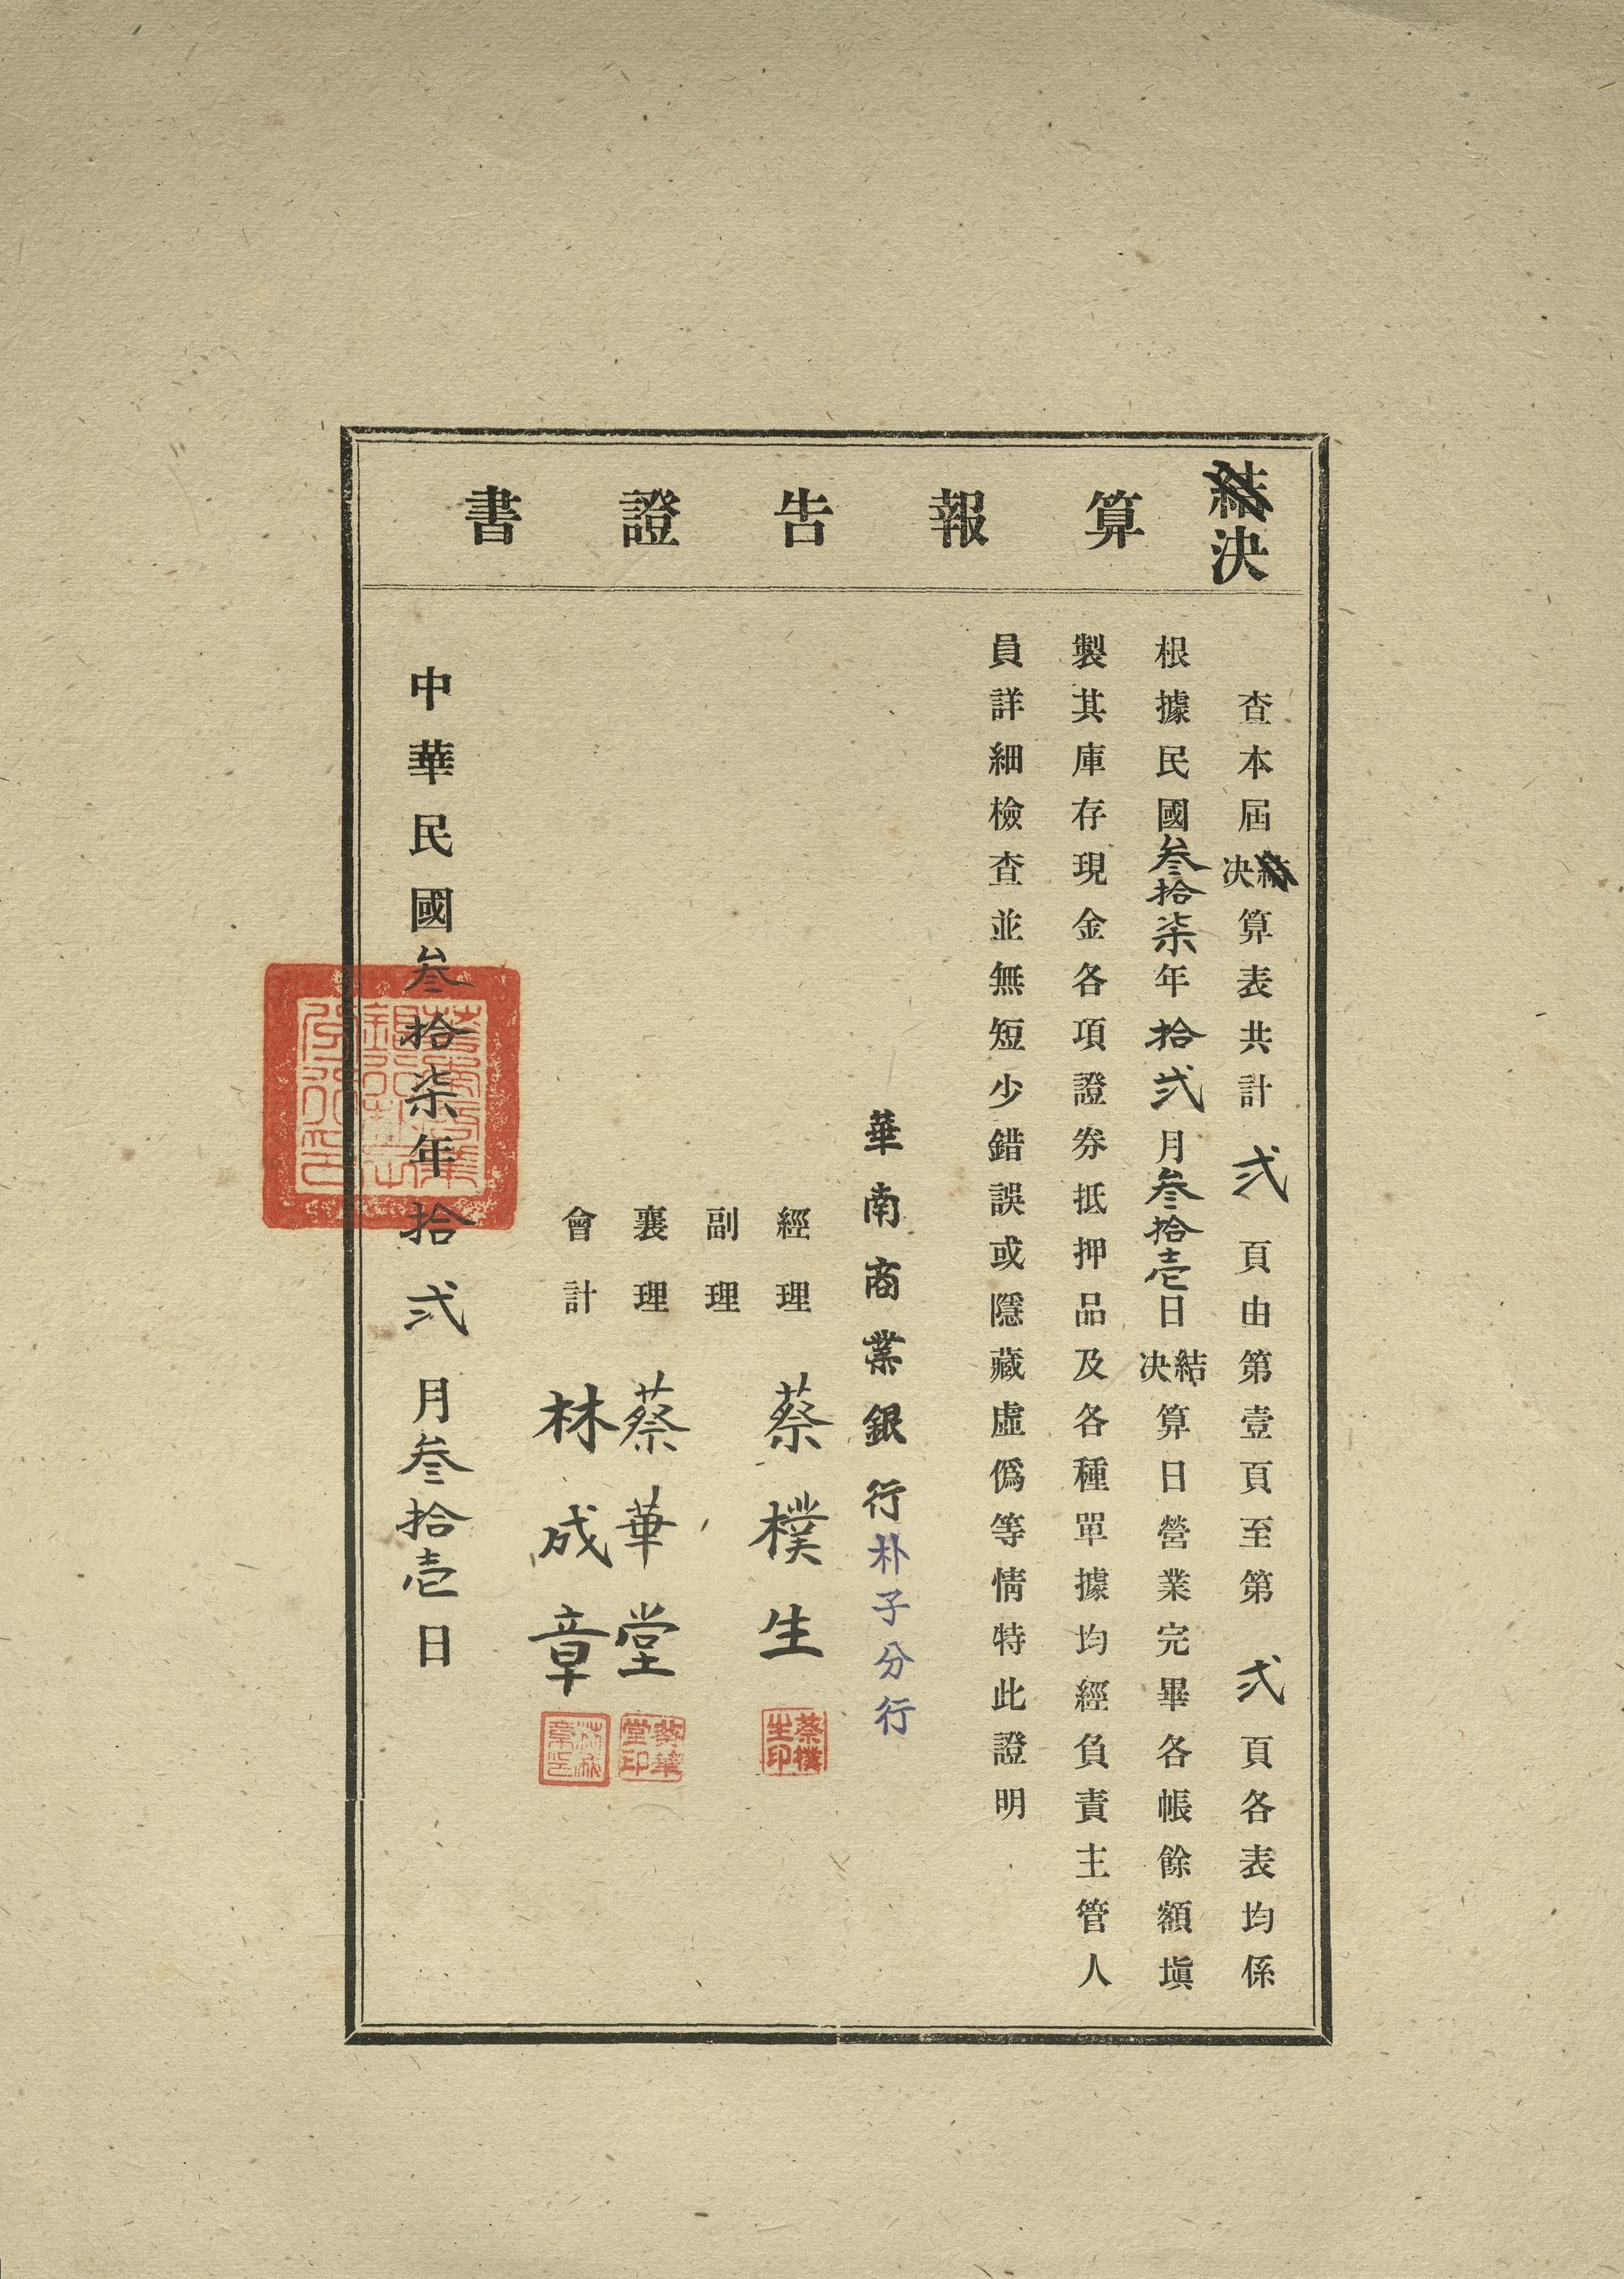 決算報告證書
查本屆決算表共計弍頁由第壹頁至第弍頁各表均係
根據民國叁拾柒年拾弍月叁拾壱日結決算日營業完畢各帳餘額塡
製其庫存現金各項證券抵押品及各種單據均經負責主管人
員詳細檢查並無短少錯誤或隱藏虛僞等情特此證明
華南商業銀行朴子分行
經理 蔡樸生
蔡樸生印
副理
襄理 蔡華堂
蔡華堂印
會計 林成章
中華民國叁拾柒年拾弍月叁拾壱日